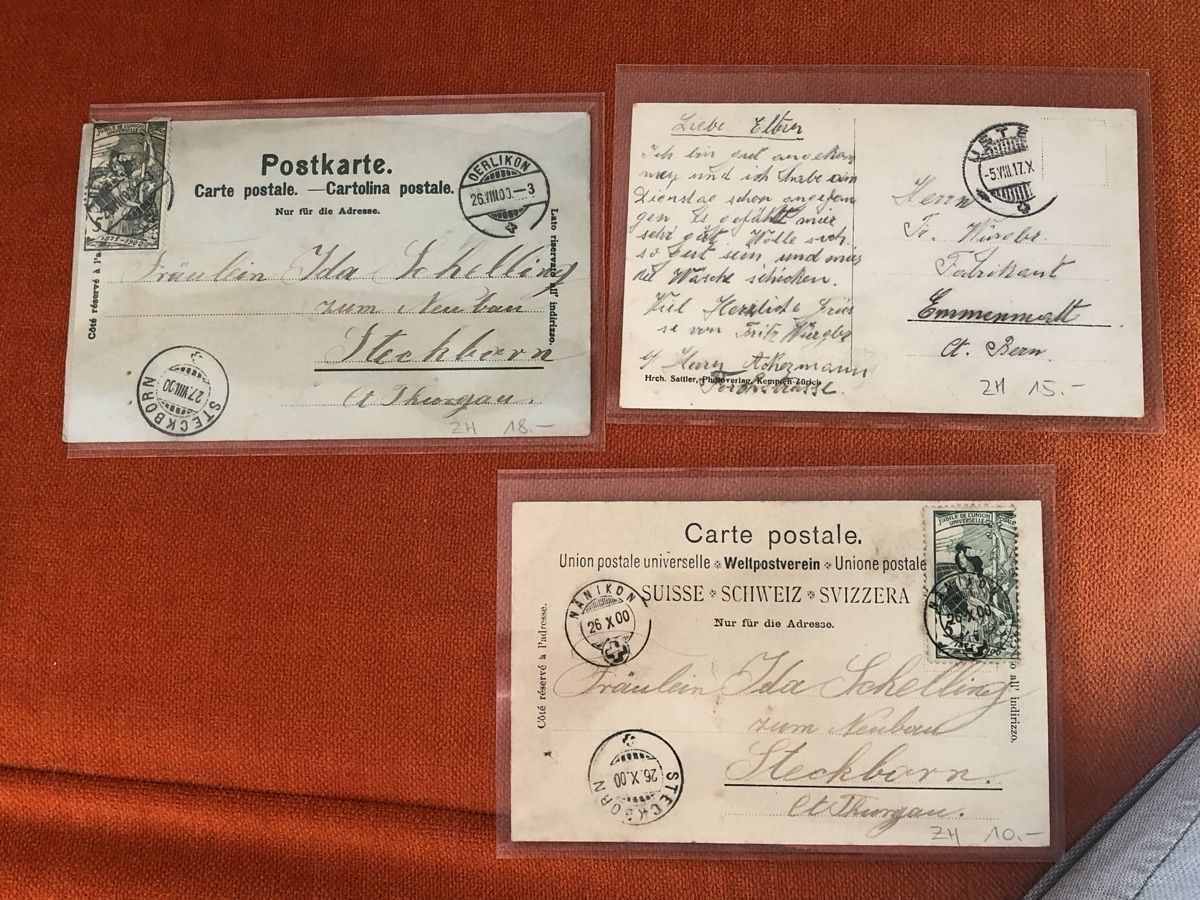 JUBILÉ DE L'UNION
UNIVERSELLE
1875-1900
Postkarte.
Carte postale. — Cartolina postale.
Nur für die Adresse.
OERLIKON
26.VIII.00.-3
Côté réservé à l'a
Lato riservato all' indirizzo.
Fräulein Ida Schelling
zum Neubau
Steckborn
Ct Thurgau.
STECKBORN
27.VIII.00
ZH 18.-
Liebe Eltern
Ich bin gut angekom
men und ich habe am
Dienstag schon angefan
gen. Es gefählt mir
sehr gut. Wolle euch
so gut sein und mir
die Wäsche schicken.
Viel Herzliche Grüs
se von Fritz
Ackermann
Hrch. Sattler, Photoverlag, Kempten-Zürich
USTER
-5.VIII.17.X
Herrn
Fr.
Fabrikant
Emmenmatt
Ct. Bern.
ZH 15.-
Carte postale.
Union postale universelle * Weltpostverein * Unione postale
SUISSE * SCHWEIZ * SVIZZERA
Nur für die Adresse.
JUBILÉ DE L'UNION
UNIVERSELLE
5
NÄNIKON
26 X 00
NÄNIKON
26 X 00
Côté réservé à l'adresse.
o all' indirizzo.
Fräulein Ida Schelling
zum Neubau
Steckborn.
Ct Thurgau.
STECKBORN
26.X.00
ZH 10.-